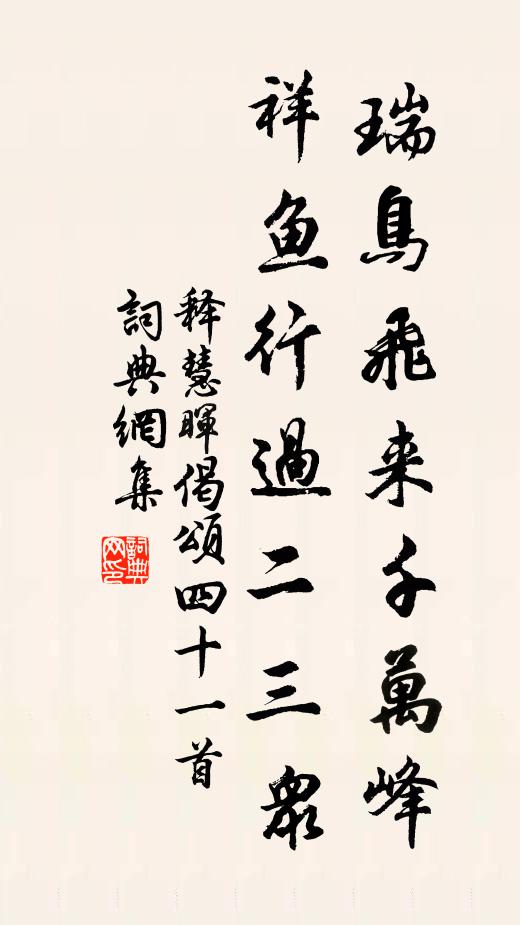 瑞鳥飛来千萬峰
祥魚行過二三眾
释慧暉偈頌四十一首
詞典網集
詞典
网印